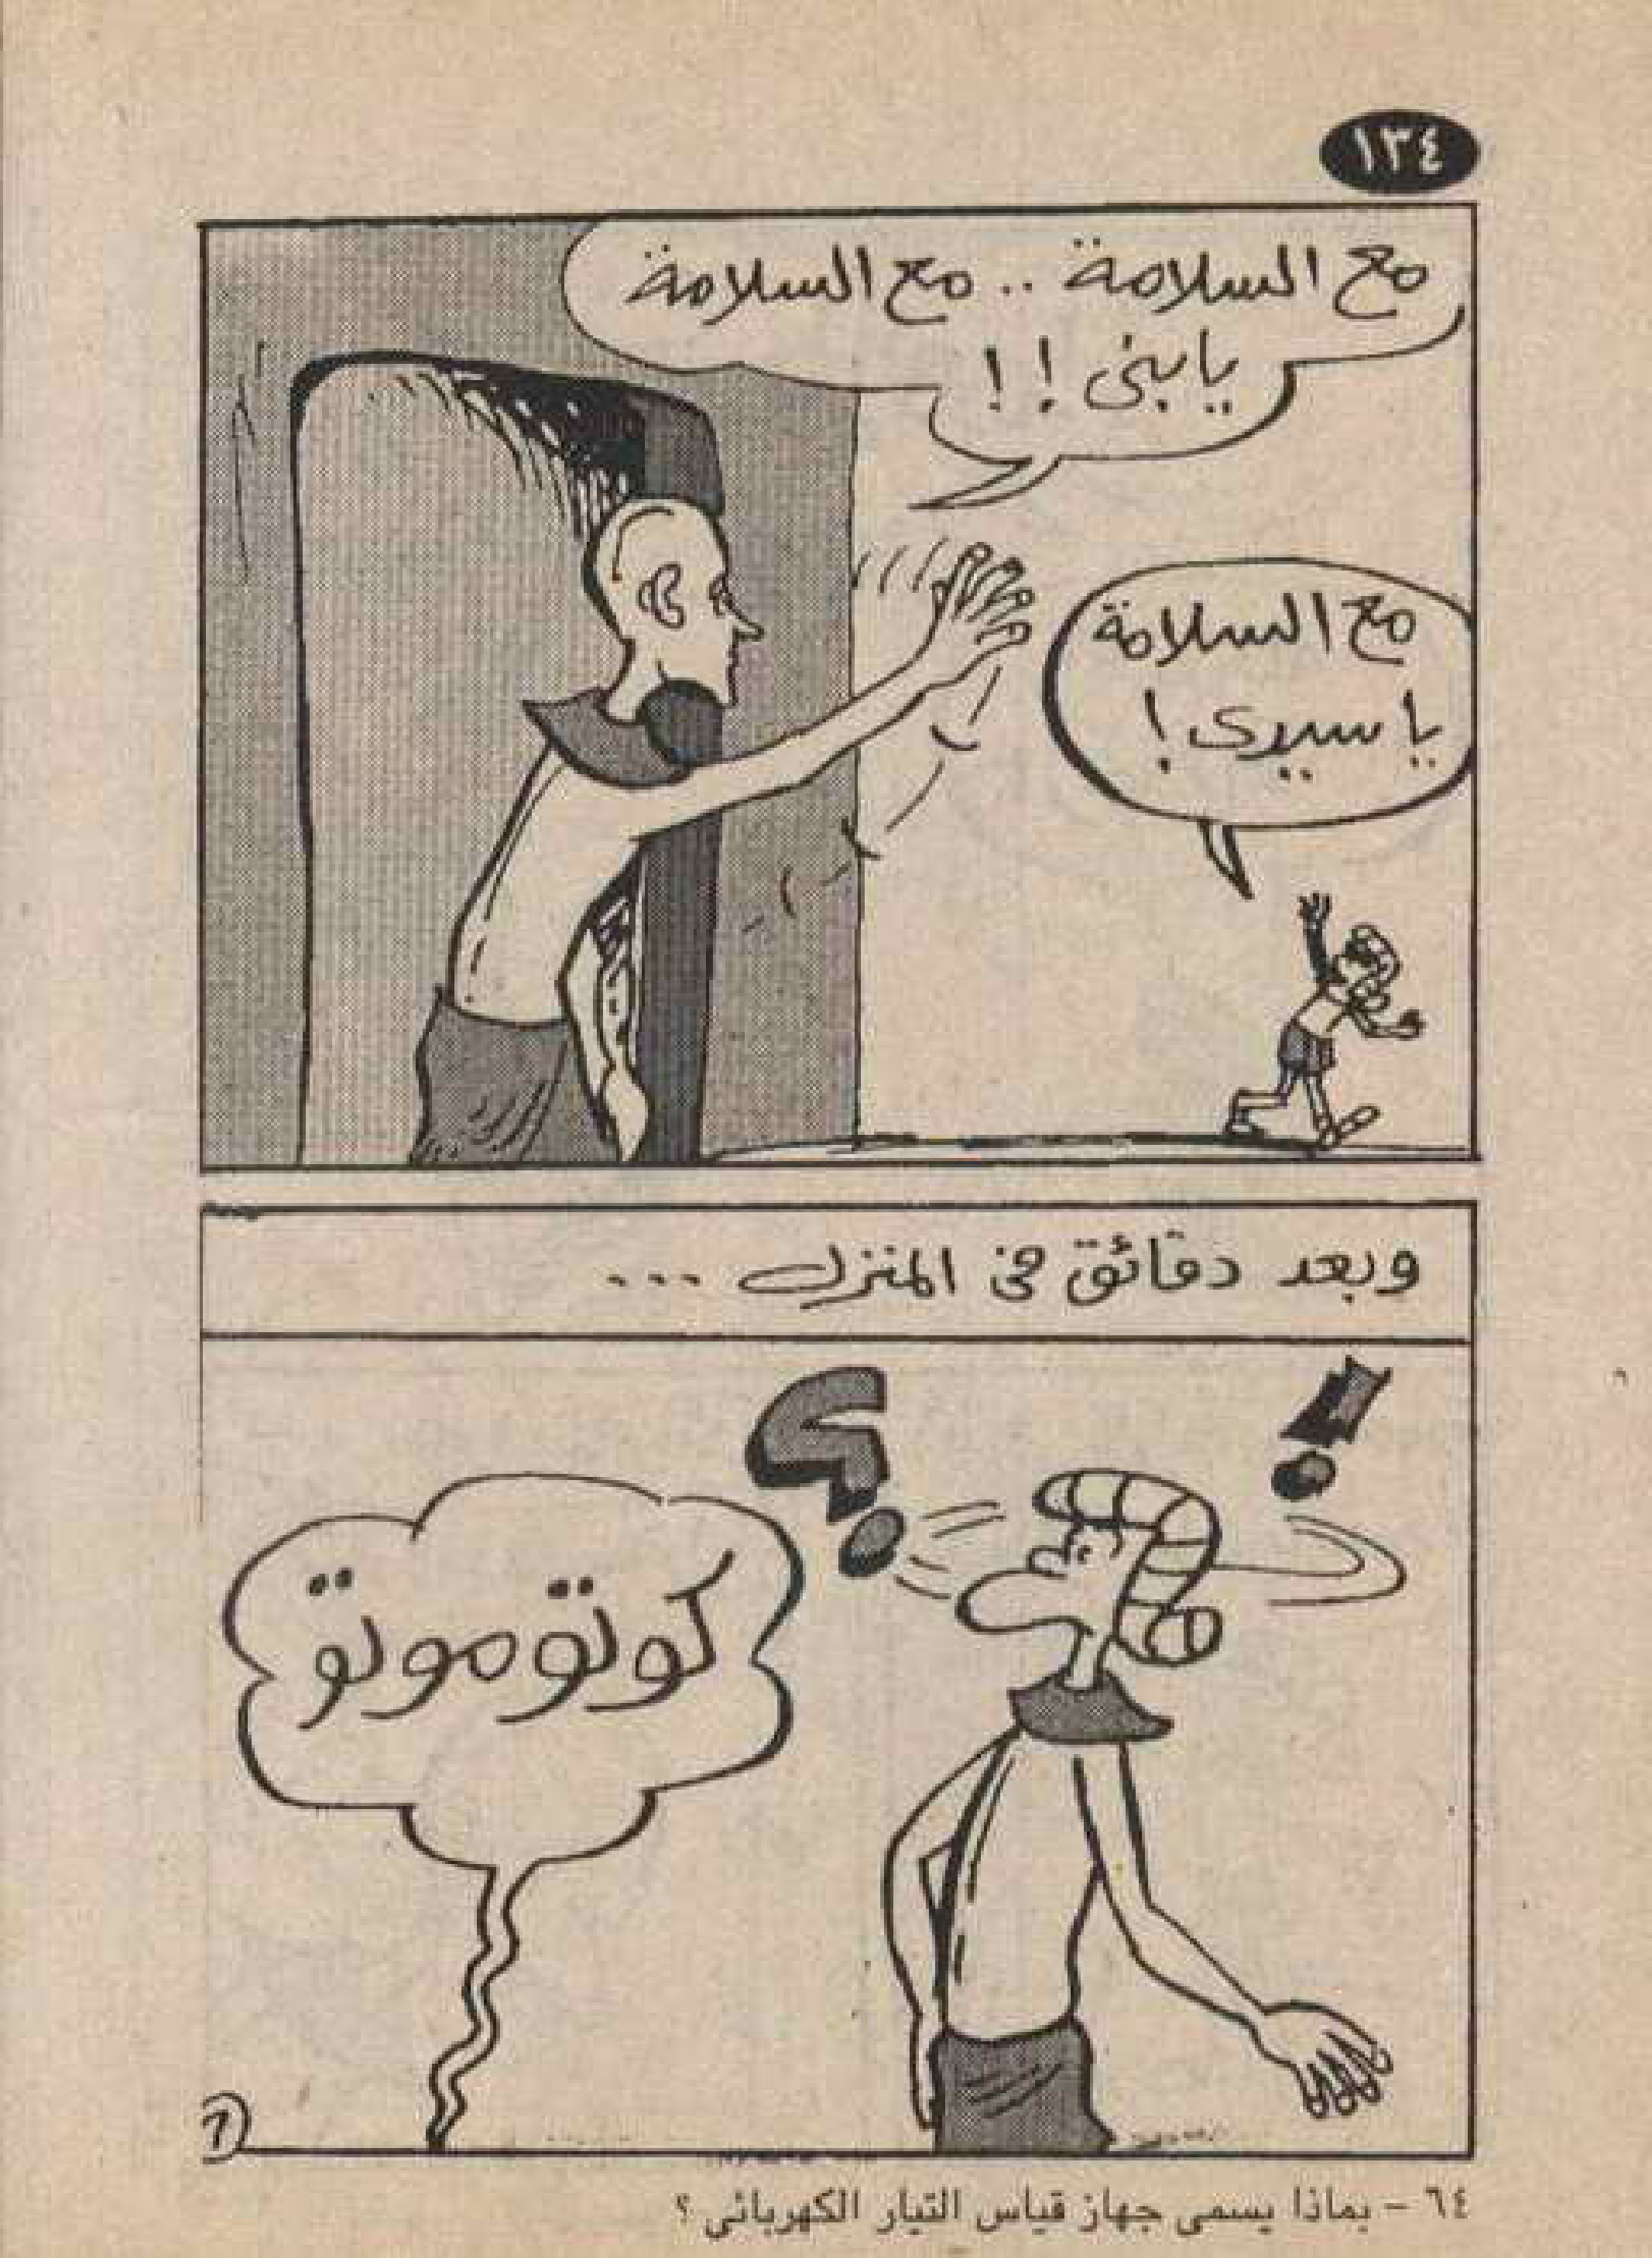 ١٣٤
مع السلامة .. مع السلامة
يا بنى !!
مع السلامة
يا سيدى !
وبعد دقائق فى المنزل ...
؟
!
كوتوموتو
٦
٦٤ – بماذا يسمى جهاز قياس التيار الكهربائي ؟